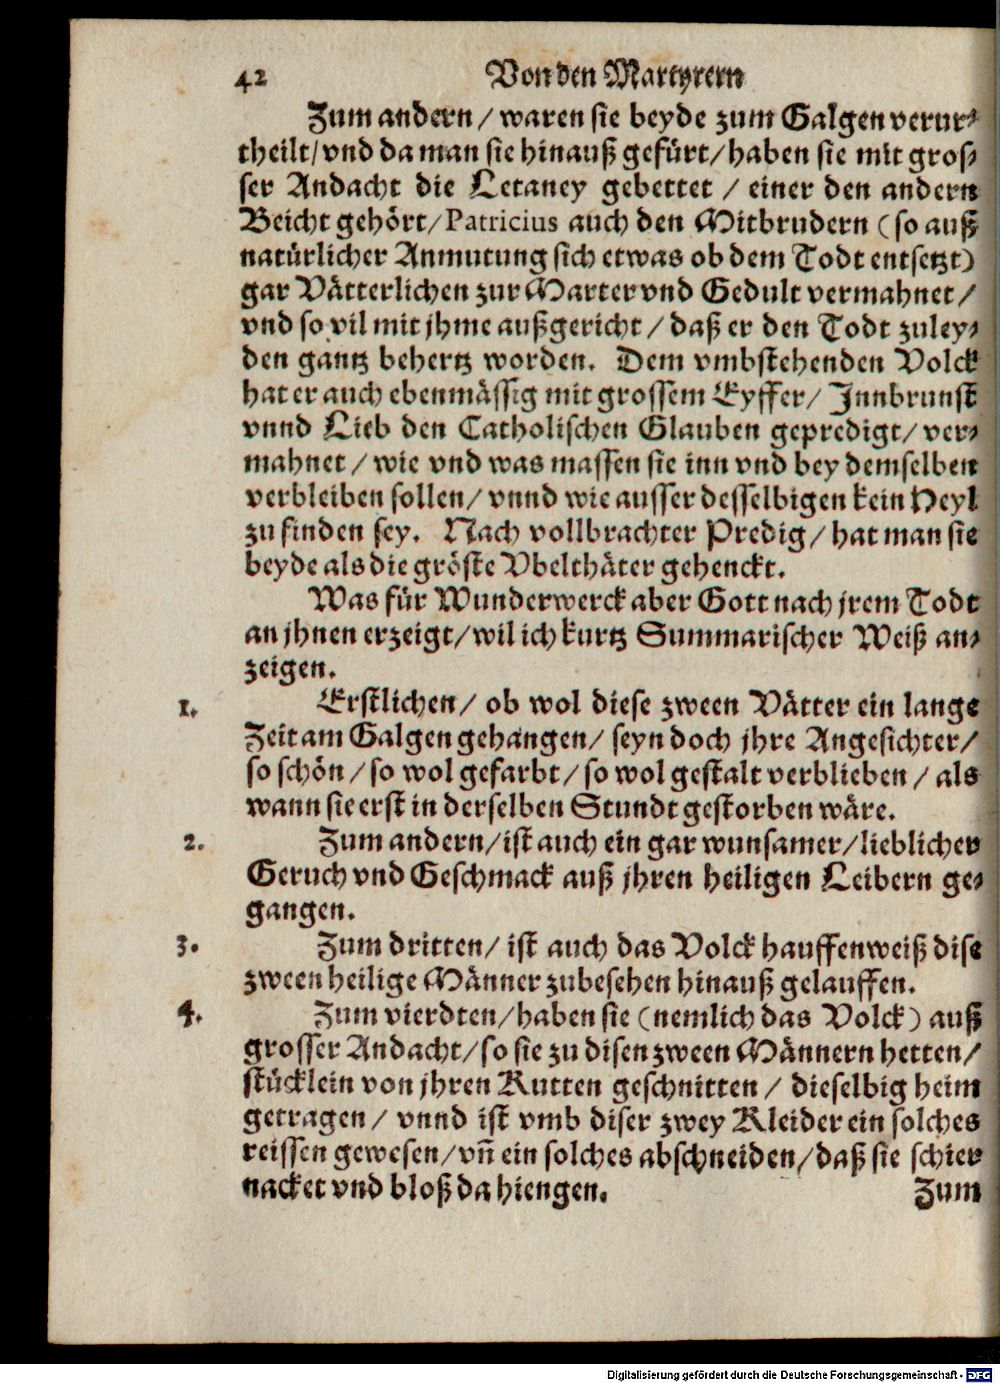 42 Von den Martyrern
Zum andern / waren sie beyde zum Galgen verur-
theilt / vnd da man sie hinauß gefürt / haben sie mit gros-
ser Andacht die Letaney gebettet / einer den andern
Beicht gehört / Patricius auch den Mitbrudern (so auß
natürlicher Anmutung sich etwas ob dem Todt entsetzt)
gar Vätterlichen zur Marter vnd Gedult vermahnet /
vnd so vil mit jhme außgericht / daß er den Todt zuley-
den gantz behertz worden. Dem vmbstehenden Volck
hat er auch ebenmässig mit grossem Eyffer / Innbrunst
vnnd Lieb den Catholischen Glauben gepredigt / ver-
mahnet / wie vnd was massen sie inn vnd bey demselben
verbleiben sollen / vnnd wie ausser desselbigen kein Heyl
zu finden sey. Nach vollbrachter Predig / hat man sie
beyde als die gröste Vbelthäter gehenckt.
Was für Wunderwerck aber Gott nach jrem Todt
an jhnen erzeigt / wil ich kurtz Summarischer Weiß an-
zeigen.
1. Erstlichen / ob wol diese zween Vätter ein lange
Zeit am Galgen gehangen / seyn doch jhre Angesichter /
so schön / so wol gefarbt / so wol gestalt verblieben / als
wann sie erst in derselben Stundt gestorben wäre.
2. Zum andern / ist auch ein gar wunsamer / lieblicher
Geruch vnd Geschmack auß jhren heiligen Leibern ge-
gangen.
3. Zum dritten / ist auch das Volck hauffenweiß dise
zween heilige Männer zubesehen hinauß gelauffen.
4. Zum vierdten / haben sie (nemlich das Volck) auß
grosser Andacht / so sie zu disen zween Männern hetten /
stücklein von jhren Kutten geschnitten / dieselbig heim
getragen / vnnd ist vmb diser zwey Kleider ein solches
reissen gewesen / vñ ein solches abschneiden / daß sie schier
nacket vnd bloß da hiengen. Zum
Digitalisierung gefördert durch die Deutsche Forschungsgemeinschaft - DFG